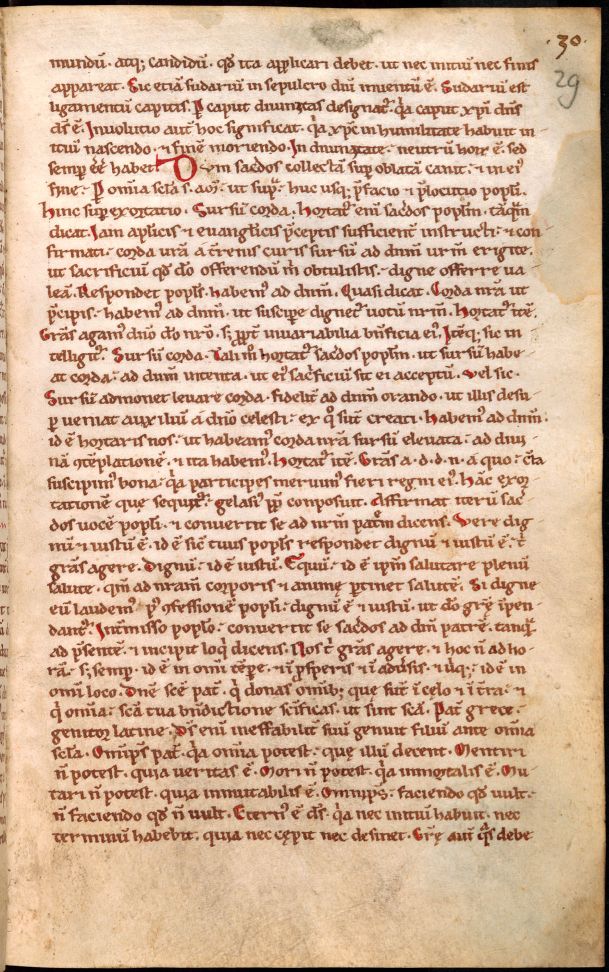 ·30·
29
mundū· atq; candidū· qd ita applicari debet· ut nec initiū nec finis
appareat· Sic etiā sudariū in sepulcro dñi inuentū ē· Sudariū est
ligamentū capitis· P caput diuinitas designat᷑· q̇a caput xp̄i dn̄s
d̄s ē· Inuolutio aut̄ hoc significat· q̇a xp̄c in humilitate habuit in
itiū nascendo· ⁊ finē moriendo· In diuinitate· neutrū hoꝝ ē· sed
semp eē habet Dum sac̄dos collectā sup oblatā canit· ⁊ in ei᷒
fine· P om̄ia sc̄la s· aom̄· ut sup̄· huc usq; p̄facio ⁊ p̄locutio popl̄i·
hinc sup exortatio· Sursū corda· hortat᷑ enī sac̄dos poplm̄· tāq̄m
dicat· Iam aplicis ⁊ euanglicis p̄ceptis sufficient̄ instructi· ⁊ con
firmati· corda urā a t̄renis curis sursū ad dnm̄ ur̄m erigite·
ut sacrificiū qd dō offerendū m̄ obtulistis· digne offerre ua
leā· Respondet popl̄s· habem᷒ ad dnm̄· Quasi dicat· Corda nr̄a ut
p̄cipis· habem᷒ ad dnm̄· ut suscipe dignet᷑ uotū nr̄m· Hortat᷑ itē·
Grās agam᷒ dn̄o dō nr̄o· s; ꝓpt̄ inuariabilia bn̄ficia ei᷒· Itēq; sic in
telligit᷑· Sursū corda· Tali m̊ hortat᷑ sac̄dos poplm̄· ut sursū habe
at corda· ad dnm̄ intenta· ut ei᷒ sac̄ficiū sit ei acceptū· Vel sic·
Sursū admonet leuare corda· fidelit̄ ad dnm̄ orando· ut illis desu
p ueniat auxiliū a dn̄o celesti· ex q̊ sūt creati· habem᷒ ad dnm̄·
id ē hortaris nos· ut habeam᷒ corda nr̄a sursū eleuata· ad diui
nā ꝯtēplationē· ⁊ ita habem᷒· hortat᷑ itē· Grās a· d· d· n· a quo· c̄ta
suscipim᷒ bona· q̇a participes meruim᷒ fieri regni ei᷒· hāc exor
tationē que sequit᷑· gelasi᷒ pp̄ conposuit· Affirmat iterū sac̄
dos uocē popl̄i· ⁊ conuertit se ad nr̄m patr̄m dicens· Vere dig
nū ⁊ iustū ē· id ē sic̄ tuus popl̄s respondet dignū ⁊ iustū ē· t̄
grās agere· Dignū· id ē iustū· Equū· id ē ip̄m salutare plenū
salute· qm̄ ad nr̄am corporis ⁊ animę ptinet salutē· Si digne
eū laudem᷒ p᷒ ꝯfessionē popl̄i· dignū ē ⁊ iustū· ut dō grę īpen
dant᷑· Int̄misso poplo· conuertit se sac̄dos ad dnm̄ patrē· tanq̄
ad p̄sentē· ⁊ incipit loq̇ dicens· Nos t̄ grās agere· ⁊ hoc n̄ ad ho
rā· s; semp· id ē in omi tēpe· ⁊ ī ꝓsperis ⁊ ī adūsis· ⁊ ubiq;· id ē in
omi loco· Dnē scē pat̄· q̇ donas omib; que sūt ī celo ⁊ ī t̄ra· ⁊
q̇ omia· scā tua bn̄dictione scīficas· ut sint scā· Pat̄ grece·
genitor latine· D̄s enī ineffabilit̄ suū genuit filiū ante om̄ia
sc̄la· Om̄ips pat̄· q̇a omia potest· quę illū decent· Mentiri
n̄ potest· quia ueritas ē· Mori n̄ potest· q̇a inmortalis ē· Mu
tari n̄ potest· quia inmutabilis ē· Om̄ips· faciendo qd uult·
n̄ faciendo qd n̄ uult· Etern᷒ ē d̄s· q̇a nec initiū habuit· nec
terminū habebit· quia nec cępit nec desinet· Grę aut̄ q̇s debe